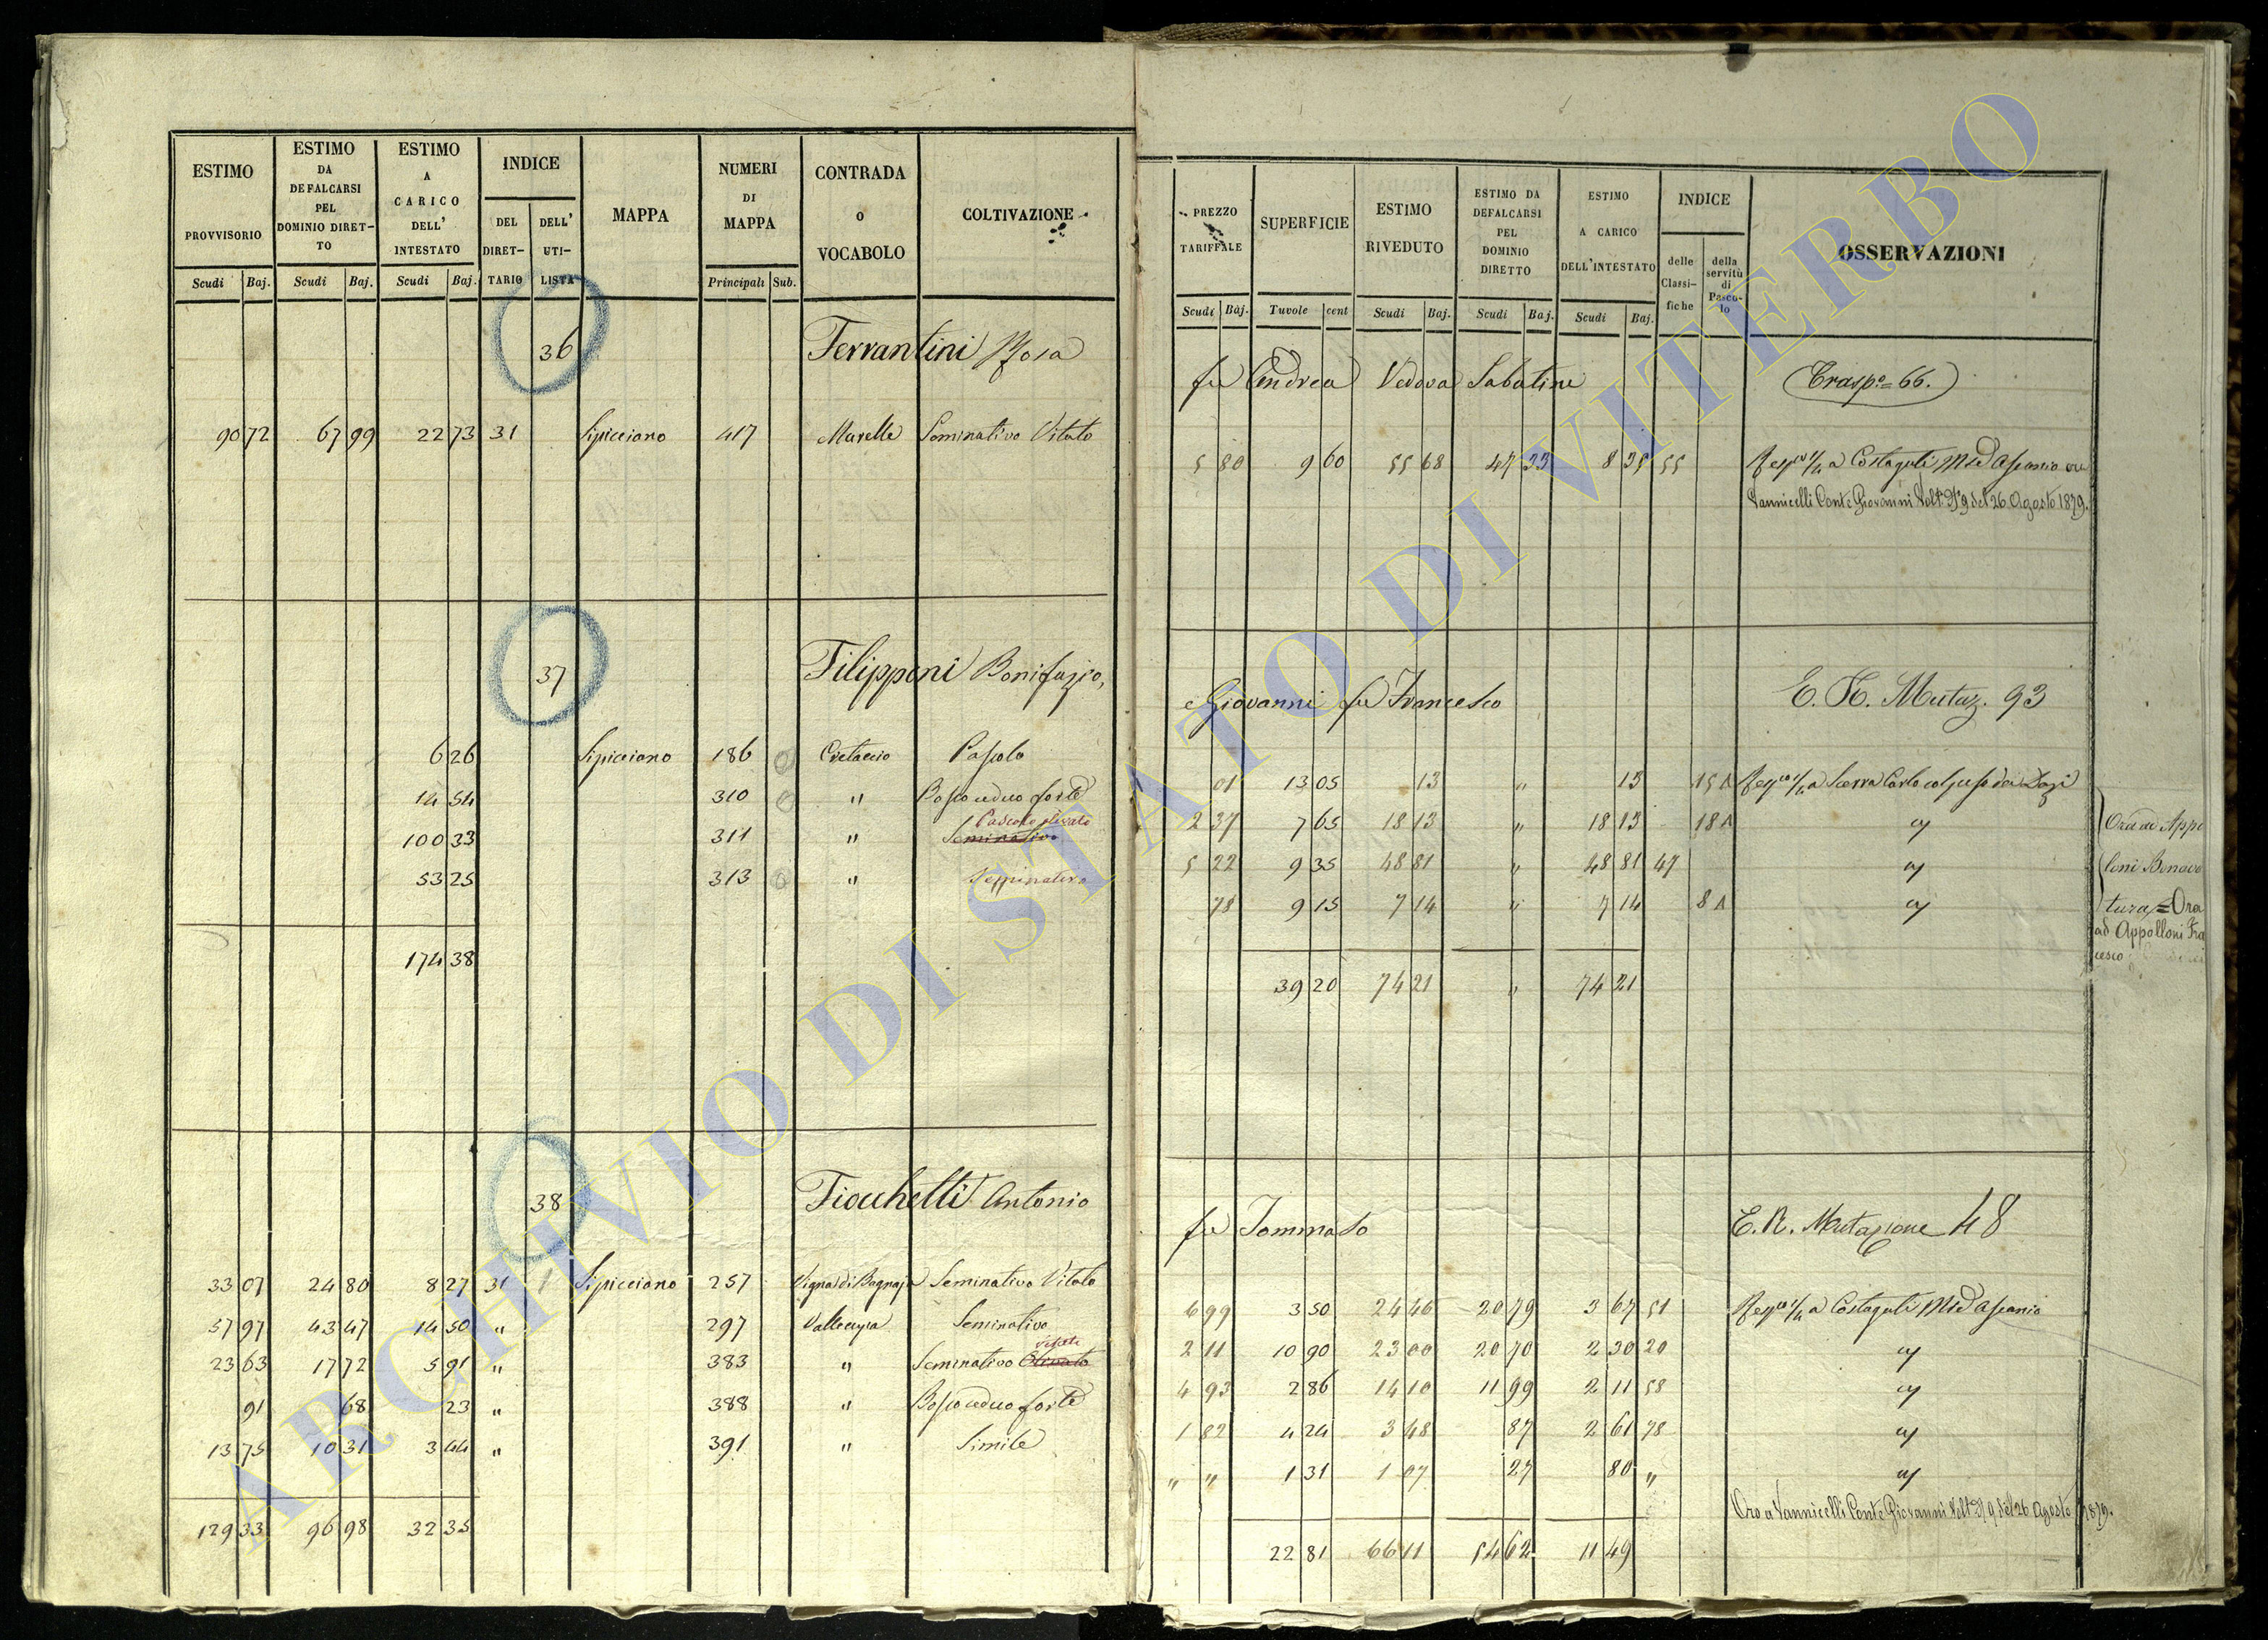 ESTIMO PROVVISORIO Scudi Baj.
ESTIMO DA DEFALCARSI PEL DOMINIO DIRET-TO Scudi Baj.
ESTIMO A CARICO DELL' INTESTATO Scudi Baj.
INDICE DEL DIRET-TARIO DELL' UTI-LISTA
MAPPA
NUMERI DI MAPPA Principali Sub.
CONTRADA O VOCABOLO
COLTIVAZIONE
PREZZO TARIFFALE Scudi Baj.
SUPERFICIE Tavole cent
ESTIMO RIVEDUTO Scudi Baj.
ESTIMO DA DEFALCARSI PEL DOMINIO DIRETTO Scudi Baj.
ESTIMO A CARICO DELL'INTESTATO Scudi Baj.
INDICE delle Classi-fiche della servitù di Pasco-lo
OSSERVAZIONI
36 Ferrantini Rosa fu Andrea Vedova Sabatini (Trasp.º = 66.)
90 72 67 99 22 73 31 Sipicciano 417 Marelle Seminativo Vitato 5 80 9 60 55 68 47 33 8 35 55 a Costaguti Ascanio ora
Vannicelli Conte Giovanni Volt. N 9 del 26 Agosto 1879.
37 Filipponi Bonifazio, e Giovanni fu Francesco E. R. Mutaz. 93
6 26 Sipicciano 186 0 Cretaccio Pascolo 01 13 05 13 " 13 15 A a Scerra Carlo col peso dei Dazi
14 54 310 0 " Bosco ceduo forte 2 37 7 65 18 13 " 18 13 18 A Ora ad Appo
100 33 311 " Seminativo Pascolo olivato 5 22 9 35 48 81 " 48 81 47 loni Bonave
53 25 313 0 " Seminativo 78 9 15 7 14 " 7 14 8 A tura = Ora
ad Appolloni Fra
cesco
174 38 39 20 74 21 " 74 21
38 Fiocchetti Antonio fu Tommaso E. R. Mutazione 48
33 07 24 80 8 27 31 1 Sipicciano 257 Vigna di Bagnaja Seminativo Vitato 6 99 3 50 24 46 20 79 3 67 51 a Costaguti Ascanio
57 97 43 47 14 50 " 297 Vallecupa Seminativo 2 11 10 90 23 00 20 70 2 30 20
23 63 17 72 5 91 " 383 " Seminativo Olivato Vitato 4 93 2 86 14 10 11 99 2 11 58
91 68 23 " 388 " Bosco ceduo forte 1 82 4 24 3 48 87 2 61 78
13 75 10 31 3 44 " 391 " Simile " " 1 31 1 07 27 80 "
Ora a Vannicelli Conte Giovanni Volt. N 9 del 26 Agosto 1879.
129 33 96 98 32 35 22 81 66 11 54 62 11 49
ARCHIVIO DI STATO DI VITERBO